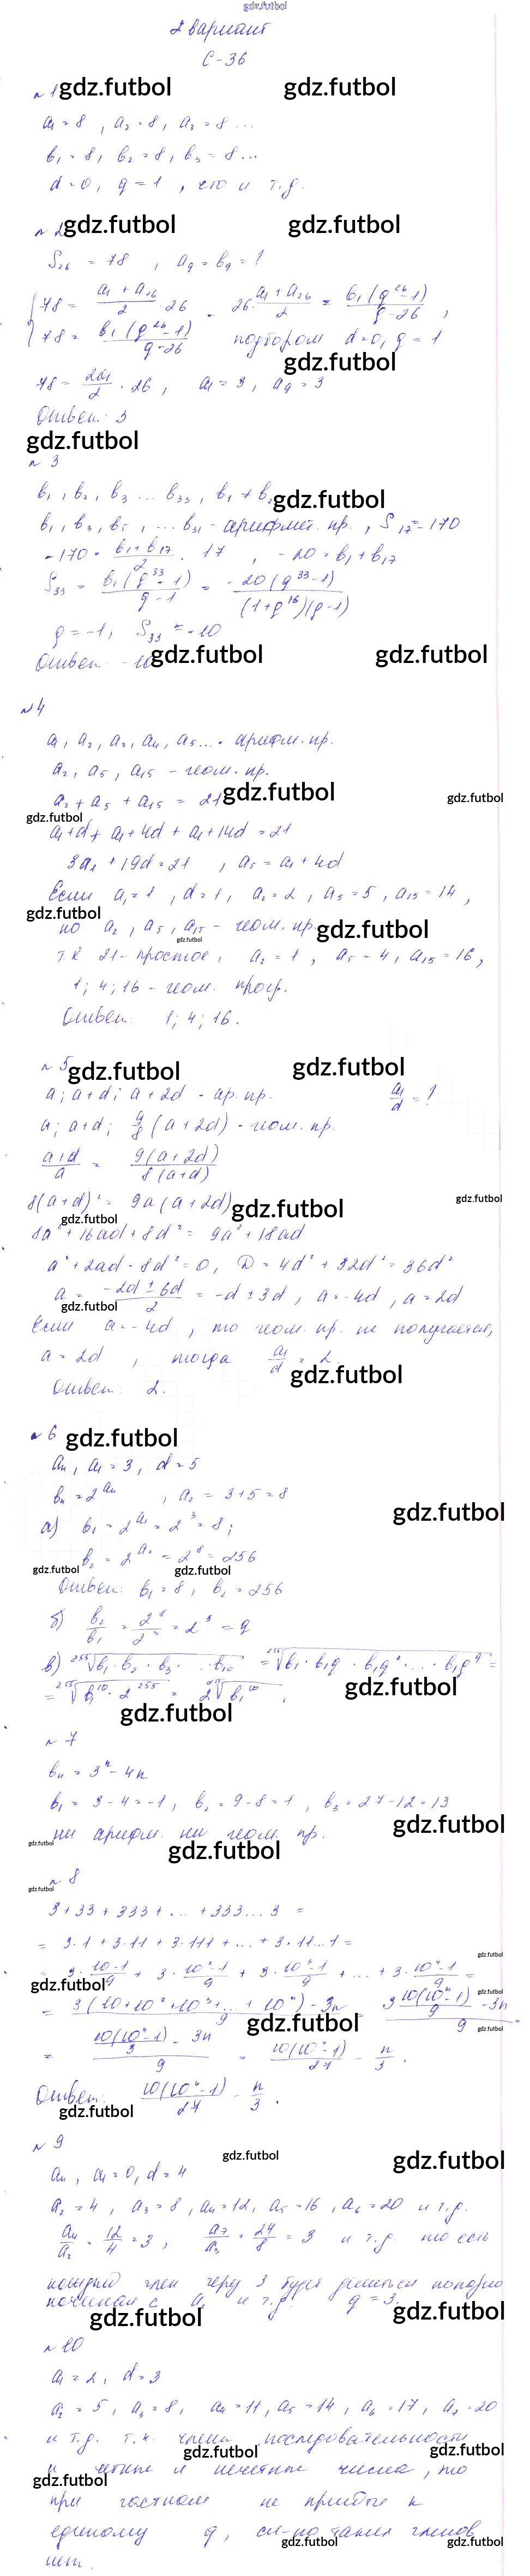 gdz.futbol
2 вариант
С-36
№1 gdz.futbol gdz.futbol
a₁=8, a₂=8, a₃=8...
b₁=8, b₂=8, b₃=8...
d=0, q=1, 
№2 gdz.futbol gdz.futbol
S₂₆ = 78, a₉=b₉=?
78 = (a₁+a₂₆)/2 · 26
26·(a₁+a₂₆)/2 = b₁(q²⁶-1)/(q-26),
78 = b₁(q²⁶-1)/(q-26) подбором d=0, q=1
gdz.futbol
78 = 2a₁/2 · 26, a₁=3, a₉=3
Ответ: 3
gdz.futbol
№3
b₁, b₂, b₃ ... b₃₃, b₁≠b₂ gdz.futbol
b₁, b₃, b₅, ... b₃₁ - арифмет. пр., S₁₇=-170
-170 = (b₁+b₁₇)/2 · 17, -20 = b₁+b₁₇
S₃₃ = b₁(q³³-1)/(q-1) = -20(q³³-1)/((1+q¹⁶)(q-1))
q=-1, S₃₃=-10
Ответ: -10 gdz.futbol gdz.futbol
№4
a₁, a₂, a₃, a₄, a₅... - арифм. пр.
a₂, a₅, a₁₅ - геом. пр.
a₂+a₅+a₁₅ = 21 gdz.futbol gdz.futbol
gdz.futbol
a₁+d+a₁+4d+a₁+14d=21
3a₁+19d=21, a₅=a₁+4d
Если a₁=1, d=1, a₂=2, a₅=5, a₁₅=14,
gdz.futbol
но a₂, a₅, a₁₅ - геом. пр. gdz.futbol
gdz.futbol
т.к 21- простое, a₂=1, a₅=4, a₁₅=16,
1; 4; 16 - геом. прогр.
Ответ: 1; 4; 16.
№5 gdz.futbol gdz.futbol
a; a+d; a+2d - ар. пр. a₁/d = ?
a; a+d; 9/8(a+2d) - геом. пр.
(a+d)/a = 9(a+2d)/(8(a+d))
8(a+d)² = 9a(a+2d) gdz.futbol gdz.futbol
gdz.futbol
8a²+16ad+8d² = 9a²+18ad
a²+2ad-8d²=0, D=4d²+32d²=36d²
a = (-2d±6d)/2 = -d±3d, a=-4d, a=2d
gdz.futbol
Если a=-4d, то геом. пр. не получается,
a=2d, тогда a₁/d = 2
gdz.futbol
Ответ: 2.
№6 gdz.futbol
aₙ, a₁=3, d=5
bₙ=2^aₙ, a₂=3+5=8
gdz.futbol
а) b₁=2^a₁=2³=8;
b₂=2^a₂=2⁸=256
gdz.futbol gdz.futbol
Ответ: b₁=8, b₂=256
б) b₂/b₁ = 2⁸/2³ = 2⁵ = q
в) ²⁵⁵√(b₁·b₂·b₃·...·b₁₀) = ²⁵⁵√(b₁·b₁q·b₁q²·...·b₁q⁹) =
gdz.futbol
= ²⁵⁵√(b₁¹⁰·2²⁵⁵) = 2 ²⁵⁵√(b₁¹⁰).
gdz.futbol
№7
bₙ=3ⁿ-4n
b₁=3-4=-1, b₂=9-8=1, b₃=27-12=13
gdz.futbol
ни арифм. ни геом. пр.
gdz.futbol
gdz.futbol
№8
gdz.futbol
3+33+333+...+333...3 =
= 3·1+3·11+3·111+...+3·11...1 =
gdz.futbol
= 3·(10-1)/9 + 3·(10²-1)/9 + 3·(10³-1)/9 + ... + 3·(10ⁿ-1)/9 =
gdz.futbol gdz.futbol
= (3(10+10²+10³+...+10ⁿ)-3n)/9 = (3·10(10ⁿ-1)/9 -3n)/9 =
gdz.futbol gdz.futbol
= (10(10ⁿ-1)/3 - 3n)/9 = 10(10ⁿ-1)/27 - n/3.
Ответ: 10(10ⁿ-1)/27 - n/3.
gdz.futbol
№9
gdz.futbol gdz.futbol
aₙ, a₁=0, d=4
a₂=4, a₃=8, a₄=12, a₅=16, a₆=20 и т.д.
a₄/a₂ = 12/4 = 3, a₇/a₃ = 24/8 = 3 и т.д. то есть
каждый член через 3 будет делиться попарно
начиная с a₂ и т.д. q=3.
gdz.futbol gdz.futbol
№10
a₁=2, d=3
a₂=5, a₃=8, a₄=11, a₅=14, a₆=17, a₇=20
и т.д. т.к. члены последовательности
gdz.futbol gdz.futbol
и четные и нечетные числа, то
gdz.futbol
при частном не придем к
единому q, сл-но таких членов
gdz.futbol gdz.futbol
нет.